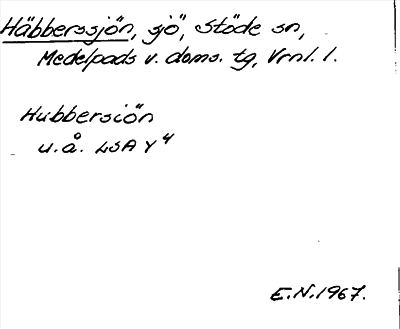 Häbberssjön, sjö, Stöde sn,
Medelpads v. doms. tg, Vrnl. l.
Hubbersiön
u.å. LSA Y4
E.N. 1967.